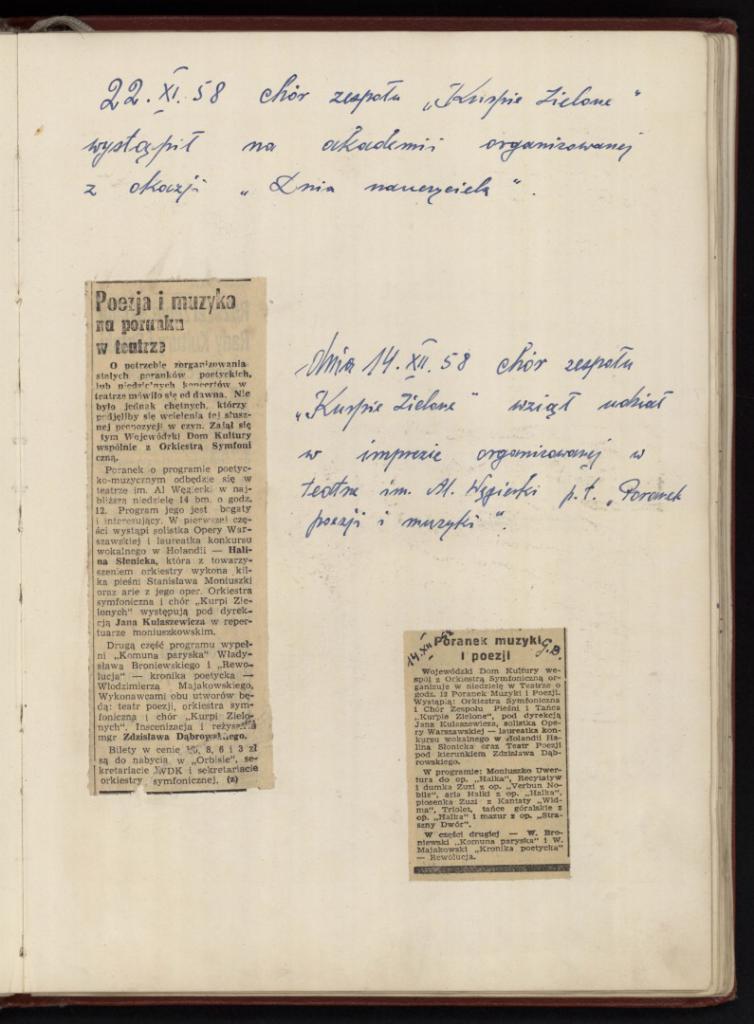 22.XI.58 chór zespołu „Kurpie Zielone"
wystąpił na akademii organizowanej
z okazji „Dnia nauczyciela".
Poezja i muzyka
na poranku
w teatrze
O potrzebie zorganizowania
stałych poranków poetyckich,
lub niedzielnych koncertów w
teatrze mówiło się od dawna. Nie
było jednak chętnych, którzy
podjęliby się wcielenia tej słusz-
nej propozycji w czyn. Zajął się
tym Wojewódzki Dom Kultury
wspólnie z Orkiestrą Symfoni
czną.
Poranek o programie poetyc-
ko-muzycznym odbędzie się w
teatrze im. Al Węgierki w naj-
bliższą niedzielę 14 bm. o godz.
12. Program jego jest bogaty
i interesujący. W pierwszej czę-
ści wystąpi solistka Opery War-
szawskiej i laureatka konkursu
wokalnego w Holandii — Hali-
na Słonicka, która z towarzy-
szeniem orkiestry wykona kil-
ka pieśni Stanisława Moniuszki
oraz arie z jego oper. Orkiestra
symfoniczna i chór „Kurpi Zie-
lonych" występują pod dyrek-
cją Jana Kulaszewicza w reper-
tuarze moniuszkowskim.
Drugą część programu wypeł-
ni „Komuna paryska" Włady-
sława Broniewskiego i „Rewo-
lucja" — kronika poetycka —
Włodzimierza Majakowskiego.
Wykonawcami obu utworów bę-
dą: teatr poezji, orkiestra sym-
foniczna i chór „Kurpi Zielo-
nych". Inscenizacja i reżyseria
mgr Zdzisława Dąbrowskiego.
Bilety w cenie 8, 6 i 3 zł
są do nabycia w „Orbisie", se-
kretariacie WDK i sekretariacie
orkiestry symfonicznej. (z)
dnia 14.XII.58 chór zespołu
„Kurpie Zielone" wziął udział
w imprezie organizowanej w
teatrze im. Al. Węgierki p.t. „Poranek
poezji i muzyki".
14.XII 58 G.B.
Poranek muzyki
i poezji
Wojewódzki Dom Kultury we-
spół z Orkiestrą Symfoniczną or-
ganizuje w niedzielę w Teatrze o
godz. 12 Poranek Muzyki i Poezji.
Wystąpią: Orkiestra Symfoniczna
i Chór Zespołu Pieśni i Tańca
„Kurpie Zielone", pod dyrekcją
Jana Kulaszewicza, solistka Ope-
ry Warszawskiej — laureatka kon-
kursu wokalnego w Holandii Ha-
lina Słonicka oraz Teatr Poezji
pod kierunkiem Zdzisława Dąb-
rowskiego.
W programie: Moniuszko Uwer-
tura do op. „Halka", Recytatyw
i dumka Zuzi z op. „Verbun No-
bile", aria Halki z op. „Halka",
piosenka Zuzi z Kantaty „Wid-
ma", Triolet, tańce góralskie z
op. „Halka" i mazur z op. „Stra-
szny Dwór".
W części drugiej — W. Bro-
niewski „Komuna paryska" i W.
Majakowski „Kronika poetycka"
— Rewolucja.